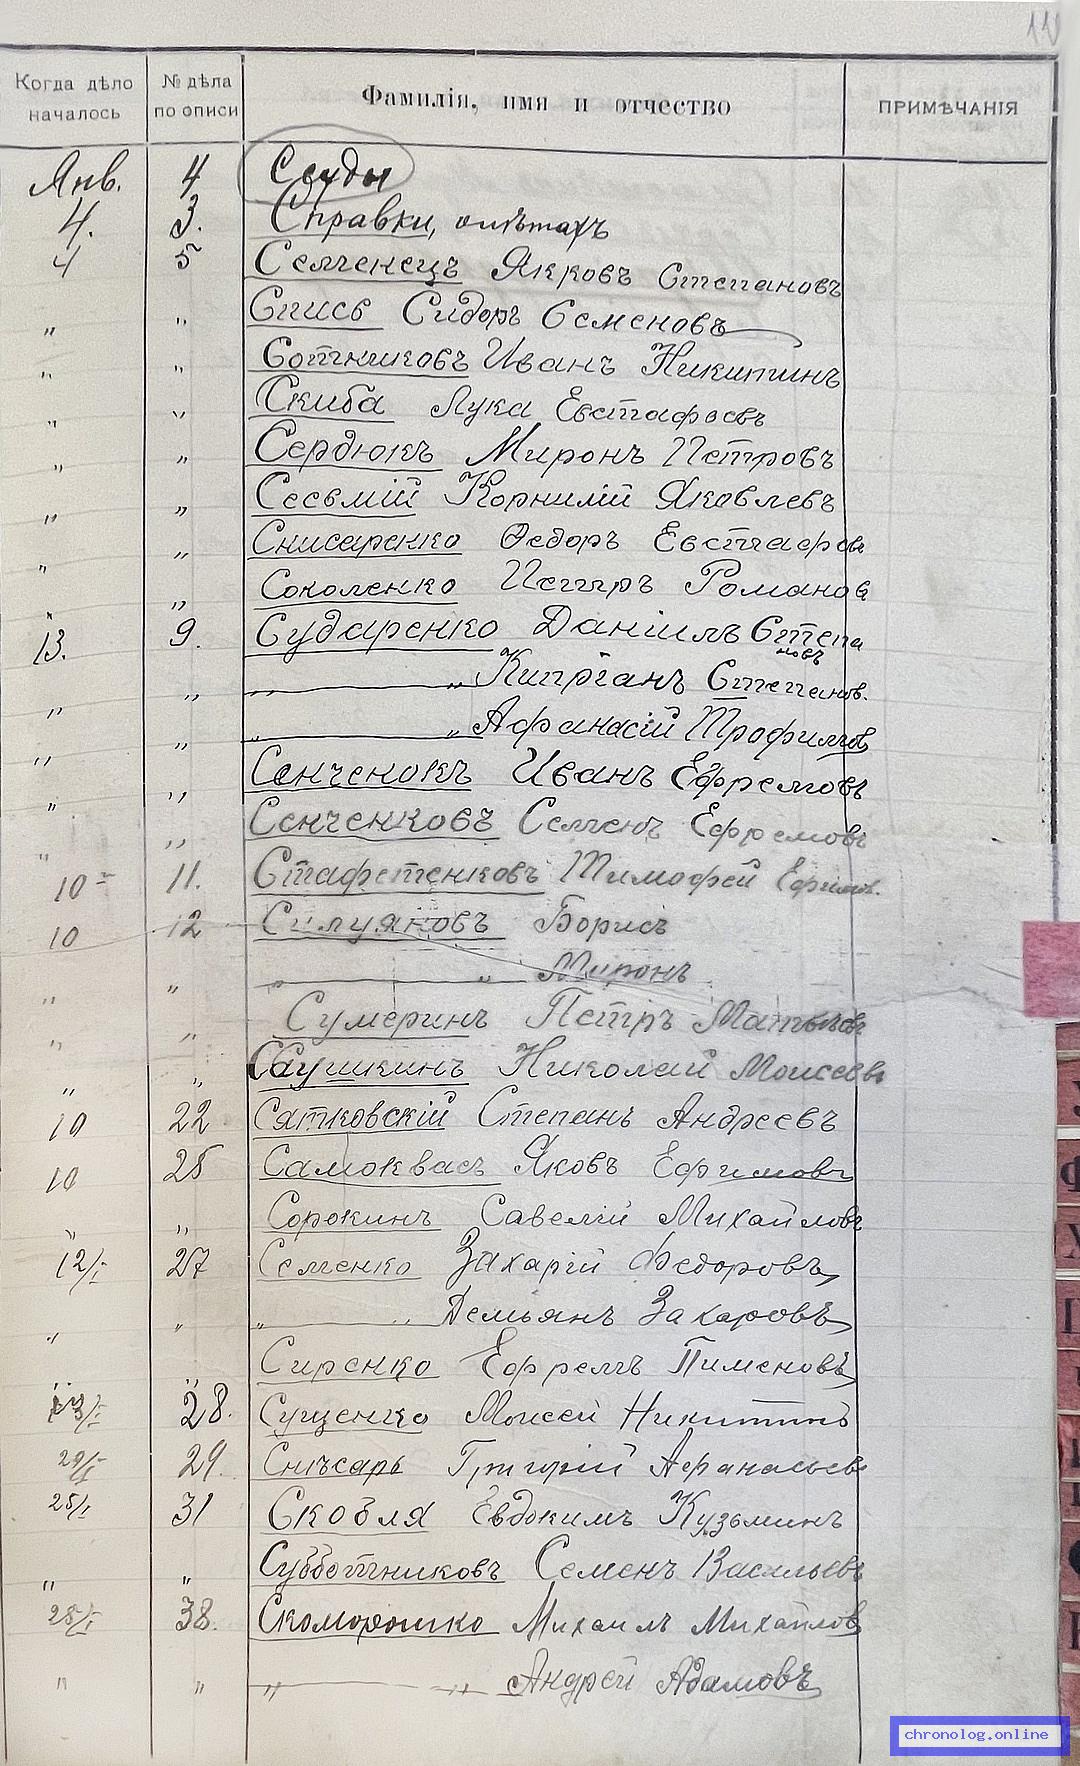 Когда дѣло началось № дѣла по описи Фамилія, имя и отчество ПРИМѢЧАНІЯ
Янв. 4 Ссуды
4. 3. Справки,
4 5 Семенецъ Яковъ Степановъ
„ „ Спись Сидоръ Семеновъ
„ „ Сотниковъ Иванъ Никитинъ
„ „ Скиба Лука Евстафьевъ
„ „ Сердюкъ Миронъ Петровъ
„ „ Корнилій Яковлевъ
„ „ Снисаренко Ѳедоръ Евстафьев
„ „ Соколенко Петръ Романов
13. 9. Сударенко Даніилъ Степановъ
„ „ „ „ Кипріанъ Степанов.
„ „ „ „ Афанасій Трофимов
„ „ Сенченокъ Иванъ Ефремовъ
„ „ Сенченковъ Семенъ Ефремовъ
10 11. Стафетенковъ Тимофей Ефимов.
10 12 Силуяновъ Борисъ
„ „ „ „ Миронъ
„ „ Сумеринъ Петръ
„ „ Саушкинъ Николай Моисеевъ
10 22 Сятковскій Степанъ Андреевъ
10 25 Самоквасъ Яковъ Ефимовъ
„ „ Сорокинъ Савелій Михайловъ
12/I 27 Семенко Захарій Федоровъ
„ „ „ „ Демьянъ Захаровъ
„ „ Сиренко Ефремъ Пименовъ
28. Сущенко Моисей Никитинъ
29. Снѣсарь Григорій Афанасьев
25/I 31 Скобля Евдокимъ Кузьминъ
„ „ Субботниковъ Семенъ Васильевъ
28/I 38. Скоморошко Михаилъ Михайлов
„ „ „ „ Андрей Адамовъ
chronolog.online